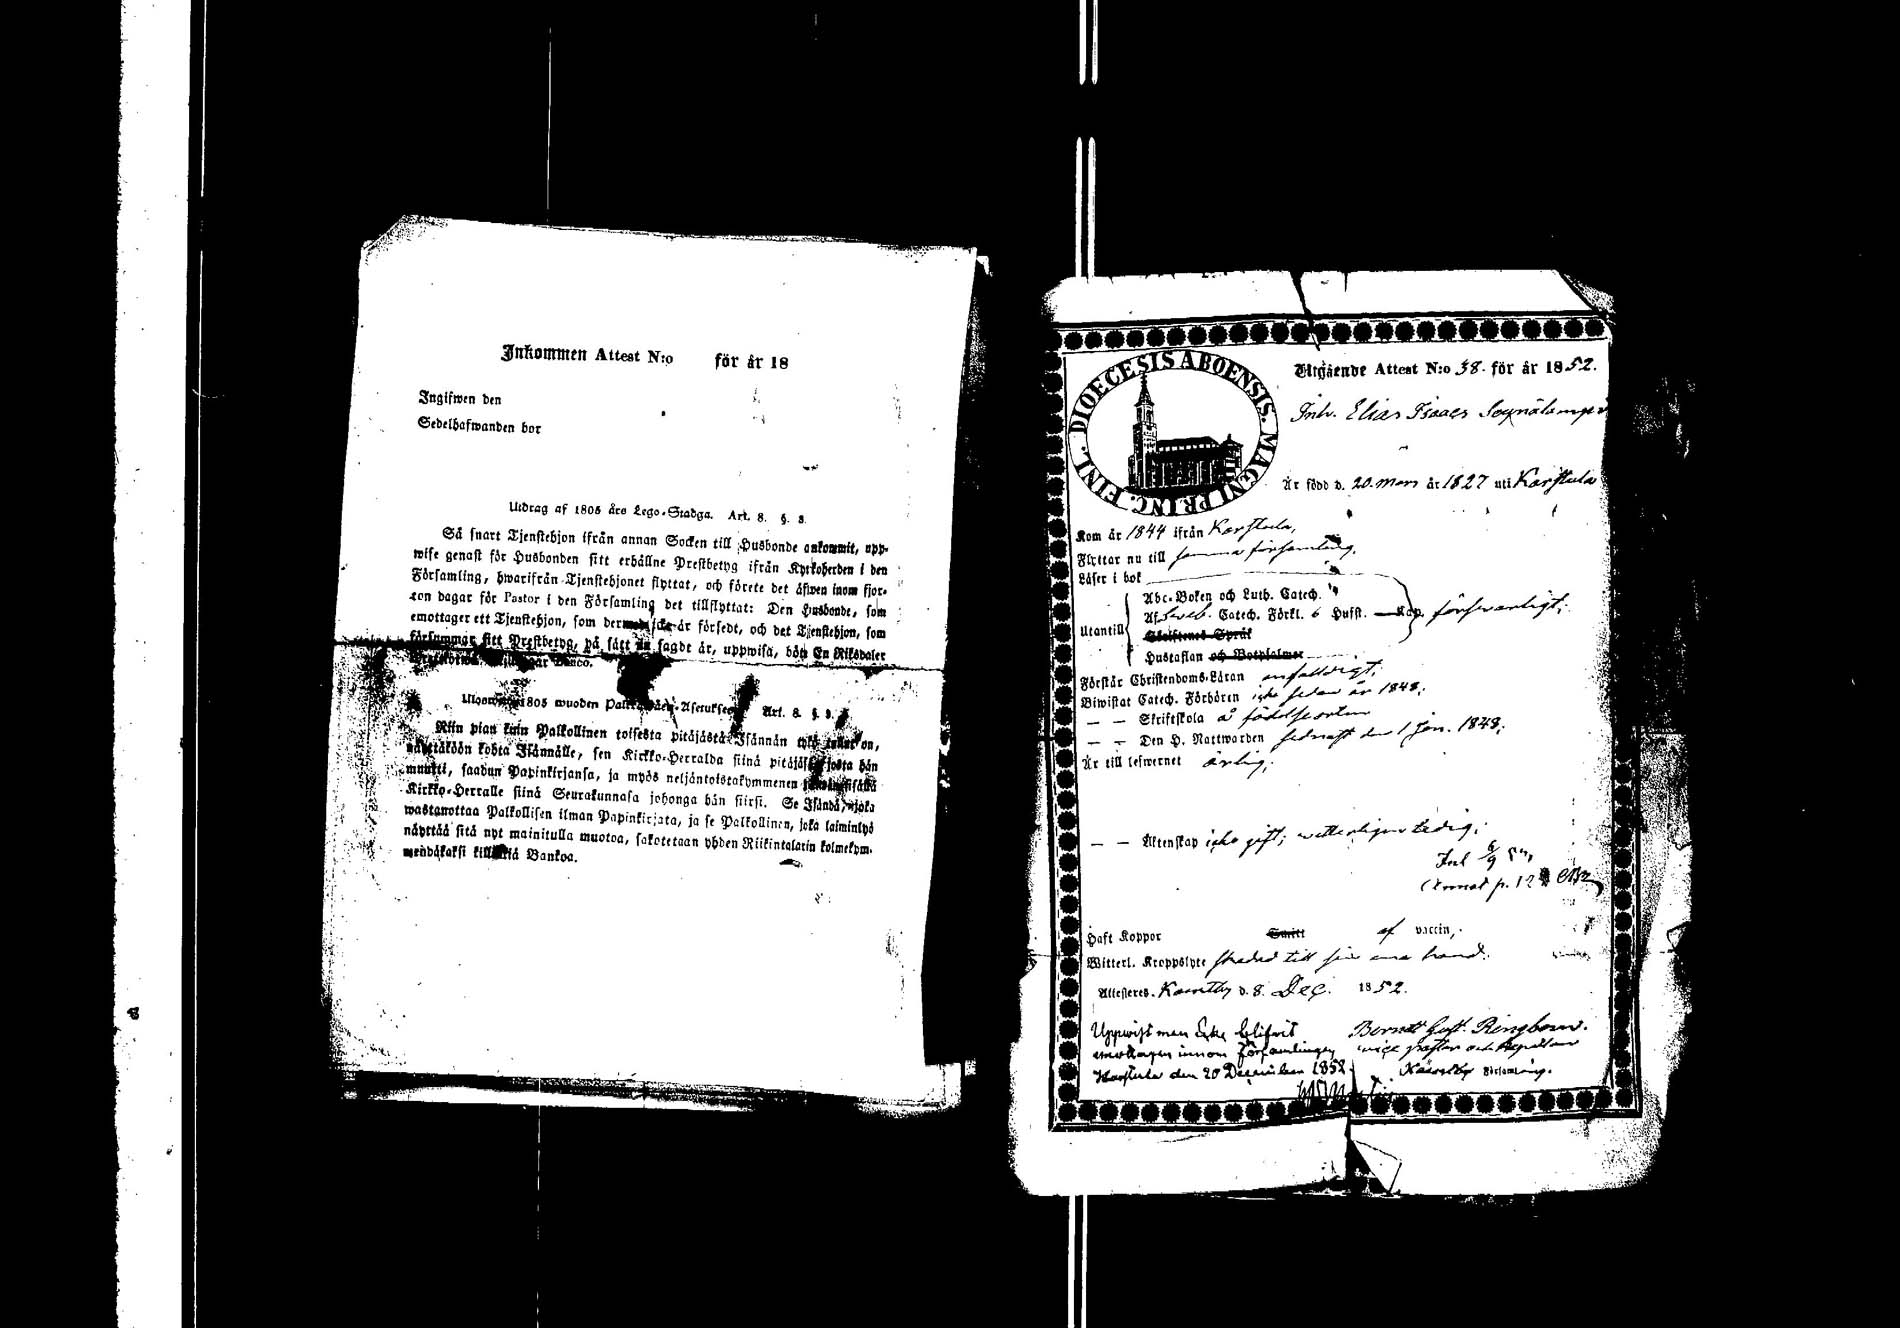 Inkommen Attest N:o för år 18
Ingifwen den
Sedelhafwanden bor
Utdrag af 1805 års Lego-Stadga. Art. 8. §. 8.
Så snart Tjenstehjon ifrån annan Socken till Husbonde ankommit, upp-
wise genast för Husbonden sitt erhållne Prestbetyg ifrån Kyrkoherden i den
Församling, hwarifrån Tjenstehjonet flyttat, och förete det äfwen inom fjor-
ton dagar för Pastor i den Församling det tillflyttat: Den Husbonde, som
emottager ett Tjenstehjon, som dermed icke är försedt, och det Tjenstehjon, som
försummar sitt Prestbetyg, på sätt nu sagdt är, uppwisa, böte En Riksdaler
Banco.
1805 wuoden Art. 8. §. 8.
Niin pian kuin Palkollinen toisesta pitäjästä Isännän tykö tullut on,
näyttäköön kohta Isännälle, sen Kirkko-Herralda siinä pitäjäsä josta hän
muutti, saadun Papinkirjansa, ja myös neljäntoistakymmenen
Kirkko-Herralle siinä Seurakunnasa johonga hän siirsi. Se Isändä, joka
wastaanottaa Palkollisen ilman Papinkirjata, ja se Palkollinen, joka laiminlyö
näyttää sitä nyt mainitulla muotoa, sakotetaan yhden Riikintalarin kolmekym-
mendäkaksi killinkiä Bankoa.
DIOECESIS ABOENSIS. MAGNI PRINC. FINL.
Utgående Attest N:o 38. för år 1852.
Inh. Elias Isaacs
Är född d. 20 mars år 1827 uti Karstula
Kom år 1844 ifrån Karstula,
Flyttar nu till samma församling.
Läser i bok
Abc-Boken och Luth. Catech.
Utantill Af Sweb. Catech. Förkl. 6 Hufst. Kap. försvarligt;
Skriftenes Språk
Hustaflan och Botpsalmer
Förstår Christendoms-Läran enfaldigt;
Biwistat Catech. Förhören icke sedan år 1848;
— — Skriftskola å födelseorten
— — Den H. Nattwarden sednast den 1 Jan. 1848;
Är till lefwernet ärlig;
— — Äktenskap icke gift; witterligen ledig;
Haft Koppor af vaccin,
Witterl. Kroppslyte skadad till sin ena hand.
Attesteras. Kaustby d. 8. Dec. 1852.
Berndt Gust. Ringbom.
vice pastor och kapellan
Kaustby Församling.
Uppwist men icke blifwit
emottagen innom församlingen
Karstula den 20 December 1852